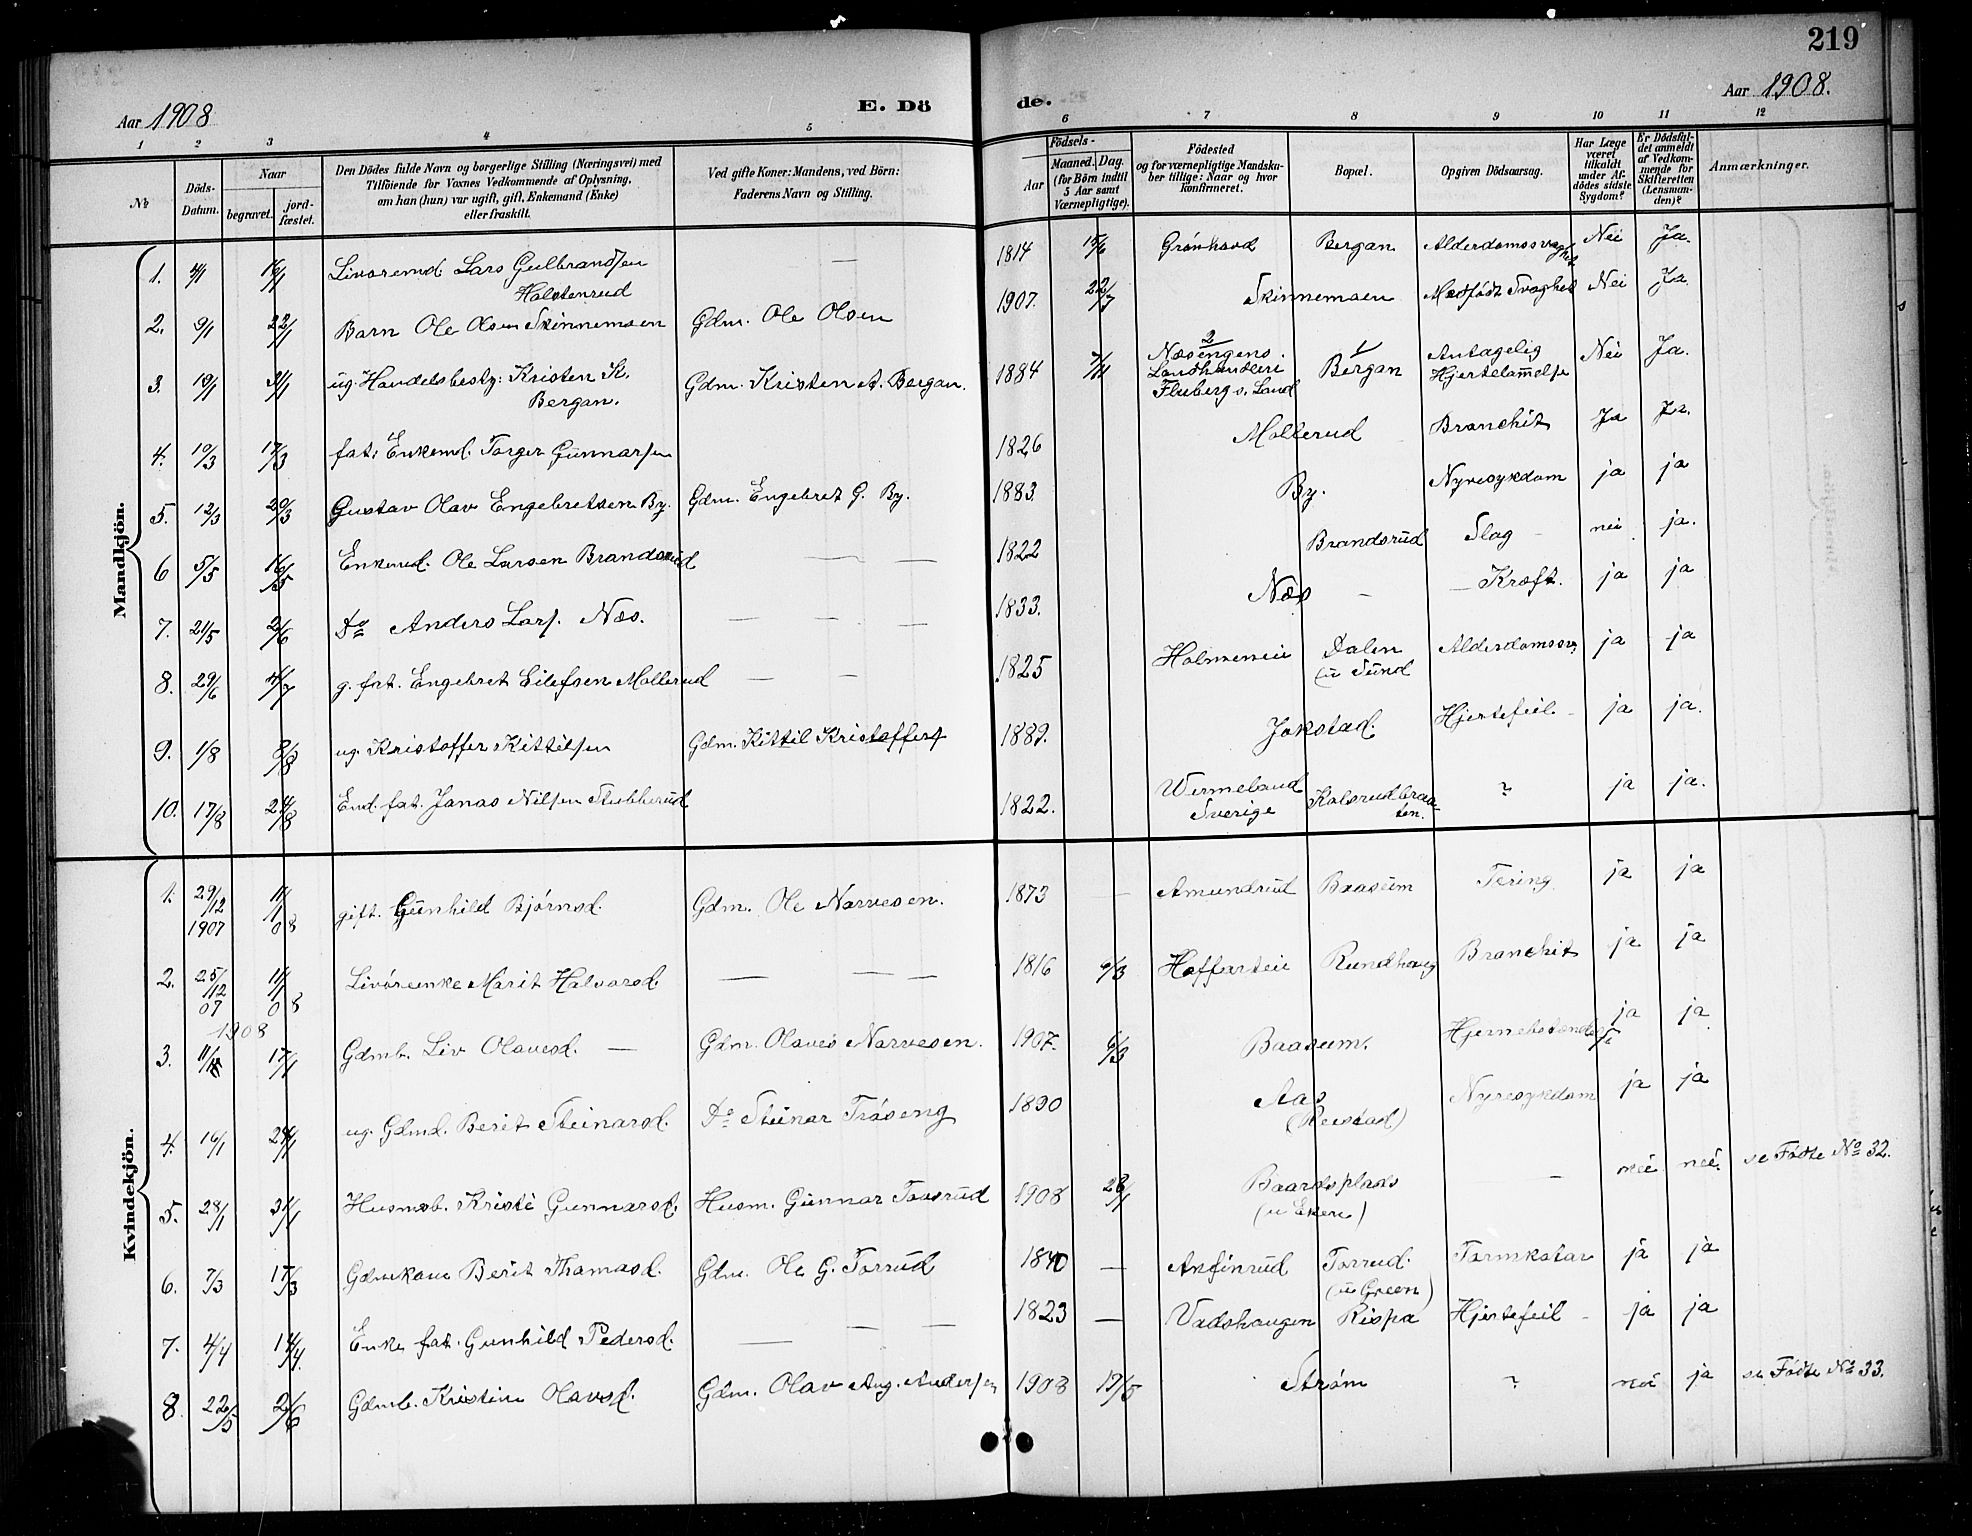 219
Aar 1908
E. Dö
de.
Aar 1908.
1 2 3 4 5 6 7 8 9 10 11 12
№
Döds-
Datum.
Naar
begravet.
jord-
fæstet.
Den Dödes fulde Navn og borgerlige Stilling (Næringsvei) med
Tilföiende for Voxnes Vedkommende af Oplysning,
om han (hun) var ugift, gift, Enkemand (Enke)
eller fraskilt.
Ved gifte Koner: Mandens, ved Börn:
Faderens Navn og Stilling.
Födsels-
Aar
Maaned. Dag.
(for Börn indtil
5 Aar samt
Værnepligtige).
Födested
og for værnepligtige Mandsku-
ber tillige: Naar og hvor
konfirmeret.
Bopæl.
Opgiven Dödsaarsag.
Har Læge
været
tilkaldt
under Af-
dödes sidste
Sygdom?
Er Dödsful-
det anmeldt
af Vedkom-
mende for
Skifteretten
(Lensman-
den)?
Anmærkninger.
Mandkjön.
1. 4/1 16/1 Livöremd Lars Gulbrandsen — 1814 15/6 Grönhovd Bergan Alderdomssvaghet Nei Ja.
Halstenrud
2. 9/1 22/1 Barn Ole Olsen Skinnemoen Gdm. Ole Olsen 1907. 22/7 Skinnemoen Medfödt Svaghed Nei Ja.
3. 19/1 31/1 ug. Handelsbesty: Kristen K. Gdm. Kristen A. Bergan. 1884 7/11 Næsengens Bergan Antagelig Nei Ja.
Bergan. Landhandleri Hjertelammelse
Fluberg s. Land
4. 10/3 17/3 fat: Enkemd. Torger Gunnarsen 1826 Mollerud Bronchit Ja Ja.
5. 12/3 20/3 Gustav Olav Engebretsen By. Gdm. Engebret G. By. 1883. By. Nyresykdom ja ja
6 5/5 16/5 Enkemd. Ole Larsen Brandsrud — — 1822 Brandsrud Slag — nei ja.
7. 21/5 2/6 Do Anders Lars. Næs. — — — 1833. Næs — — Kræft. ja ja
8. 29/6 4/7 g. fat. Engebret Eilefsen Mollerud — — 1825 Holmeneie Dalen Alderdomssv. ja ja
(u Sund
9. 1/8 8/8 ug. Kristoffer Kittilsen Gdm. Kittil Kristoffers 1889. Jokstad. Hjertefeil — ja ja.
10. 17/8 24/8 Emd. fat. Jonas Nilsen Stubberud 1822. Wermeland Kolsrudbraa- ? ja ja.
Sverige ten.
Kvindekjön.
1. 29/12 11/1 gift. Gunhild Björnsd. Gdm. Ole Narvesen. 1873 — Amundrud Baasum Tering ja ja
1907 08
2. 25/12 11/1 Livöreenke Marit Halvorsd. — — — 1816 9/3 Hoffarteie Rundhaug Bronchit ja ja
07 08
1908
3. 11/1 17/1 Gdmb. Liv Olavesd. — Gdm. Olaves Narvesen. 1907. 6/3 Baasum. ja ja
4. 16/1 24/1 ug. Gdmd. Berit Steinarsd. Do Steinar Tröseng 1890 Aas Nyresykdom ja ja
(Reistad)
5. 28/1 31/1 Husmb. Kristi Gunnarsd. Husm. Gunnar Toosrud 1908 28/1 Baardsplads — nei nei. se Födte No 32.
6. 7/3 15/3 Gdmkone Berit Thomasd. Gdm. Ole G. Torrud 1840 — Anfinrud Torrud. Tarmkatar ja ja
(u Green)
7. 4/4 14/4. Enke fat. Gunhild Pedersd. — — — 1823 — Vadshaugen Rispa Hjertefeil — ja ja
8. 22/5 2/6 Gdmb. Kristine Olavsd. Gdm. Olav Aug. Andersen 1908 19/5 Ström ? nei ja se Födte No 33.